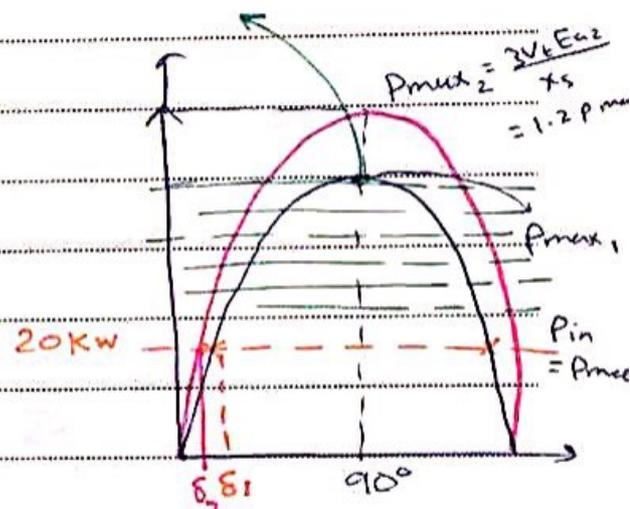 Pmax₂ = 3VtEa₂
Xs
= 1.2 Pma
Pmax₁
20KW
Pin
= Pmec
δ₂ δ₁
90°